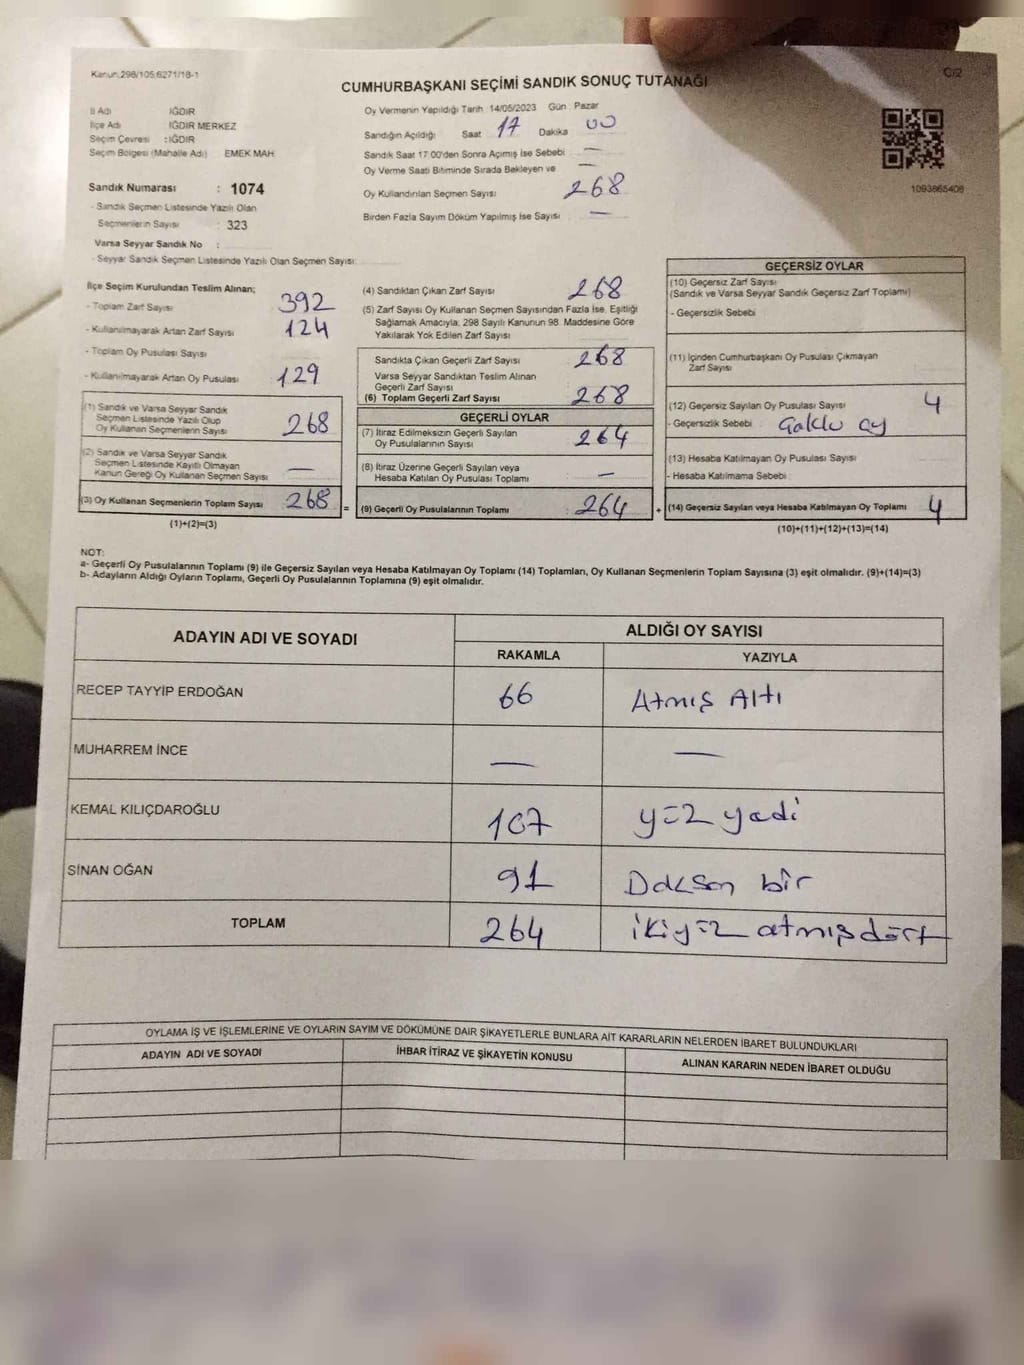 Kanun.298/105;6271/18-1
C/2
CUMHURBAŞKANI SEÇİMİ SANDIK SONUÇ TUTANAĞI
İl Adı IĞDIR
İlçe Adı IĞDIR MERKEZ
Seçim Çevresi : IĞDIR
Seçim Bölgesi (Mahalle Adı) EMEK MAH
Sandık Numarası : 1074
- Sandık Seçmen Listesinde Yazılı Olan
Seçmenlerin Sayısı : 323
Varsa Seyyar Sandık No :
- Seyyar Sandık Seçmen Listesinde Yazılı Olan Seçmen Sayısı:
Oy Vermenin Yapıldığı Tarih 14/05/2023 Gün : Pazar
Sandığın Açıldığı Saat 17 Dakika 00
Sandık Saat 17:00'den Sonra Açılmış İse Sebebi —
Oy Verme Saati Bitiminde Sırada Bekleyen ve —
Oy Kullandırılan Seçmen Sayısı 268
Birden Fazla Sayım Döküm Yapılmış İse Sayısı —
1093865408
İlçe Seçim Kurulundan Teslim Alınan;
- Toplam Zarf Sayısı 392
- Kullanılmayarak Artan Zarf Sayısı 124
- Toplam Oy Pusulası Sayısı
- Kullanılmayarak Artan Oy Pusulası 129
(1) Sandık ve Varsa Seyyar Sandık
Seçmen Listesinde Yazılı Olup
Oy Kullanan Seçmenlerin Sayısı 268
(2) Sandık ve Varsa Seyyar Sandık
Seçmen Listesinde Kayıtlı Olmayan
Kanun Gereği Oy Kullanan Seçmen Sayısı —
(3) Oy Kullanan Seçmenlerin Toplam Sayısı 268 =
(1)+(2)=(3)
(4) Sandıktan Çıkan Zarf Sayısı 268
(5) Zarf Sayısı Oy Kullanan Seçmen Sayısından Fazla İse, Eşitliği
Sağlamak Amacıyla; 298 Sayılı Kanunun 98. Maddesine Göre
Yakılarak Yok Edilen Zarf Sayısı
Sandıkta Çıkan Geçerli Zarf Sayısı 268
Varsa Seyyar Sandıktan Teslim Alınan
Geçerli Zarf Sayısı
(6) Toplam Geçerli Zarf Sayısı 268
GEÇERLİ OYLAR
(7) İtiraz Edilmeksizin Geçerli Sayılan
Oy Pusulalarının Sayısı 264
(8) İtiraz Üzerine Geçerli Sayılan veya
Hesaba Katılan Oy Pusulası Toplamı —
(9) Geçerli Oy Pusulalarının Toplamı : 264 +
GEÇERSİZ OYLAR
(10) Geçersiz Zarf Sayısı
(Sandık ve Varsa Seyyar Sandık Geçersiz Zarf Toplamı)
- Geçersizlik Sebebi
(11) İçinden Cumhurbaşkanı Oy Pusulası Çıkmayan
Zarf Sayısı
(12) Geçersiz Sayılan Oy Pusulası Sayısı 4
- Geçersizlik Sebebi : oy
(13) Hesaba Katılmayan Oy Pusulası Sayısı
- Hesaba Katılmama Sebebi
(14) Geçersiz Sayılan veya Hesaba Katılmayan Oy Toplamı 4
(10)+(11)+(12)+(13)=(14)
NOT:
a- Geçerli Oy Pusulalarının Toplamı (9) ile Geçersiz Sayılan veya Hesaba Katılmayan Oy Toplamı (14) Toplamları, Oy Kullanan Seçmenlerin Toplam Sayısına (3) eşit olmalıdır. (9)+(14)=(3)
b- Adayların Aldığı Oyların Toplamı, Geçerli Oy Pusulalarının Toplamına (9) eşit olmalıdır.
ADAYIN ADI VE SOYADI
ALDIĞI OY SAYISI
RAKAMLA YAZIYLA
RECEP TAYYİP ERDOĞAN 66 Atmış Altı
MUHARREM İNCE — —
KEMAL KILIÇDAROĞLU 107 yüz yedi
SİNAN OĞAN 91 Doksan bir
TOPLAM 264 ikiyüz atmışdört
OYLAMA İŞ VE İŞLEMLERİNE VE OYLARIN SAYIM VE DÖKÜMÜNE DAİR ŞİKAYETLERLE BUNLARA AİT KARARLARIN NELERDEN İBARET BULUNDUKLARI
ADAYIN ADI VE SOYADI İHBAR İTİRAZ VE ŞİKAYETİN KONUSU ALINAN KARARIN NEDEN İBARET OLDUĞU